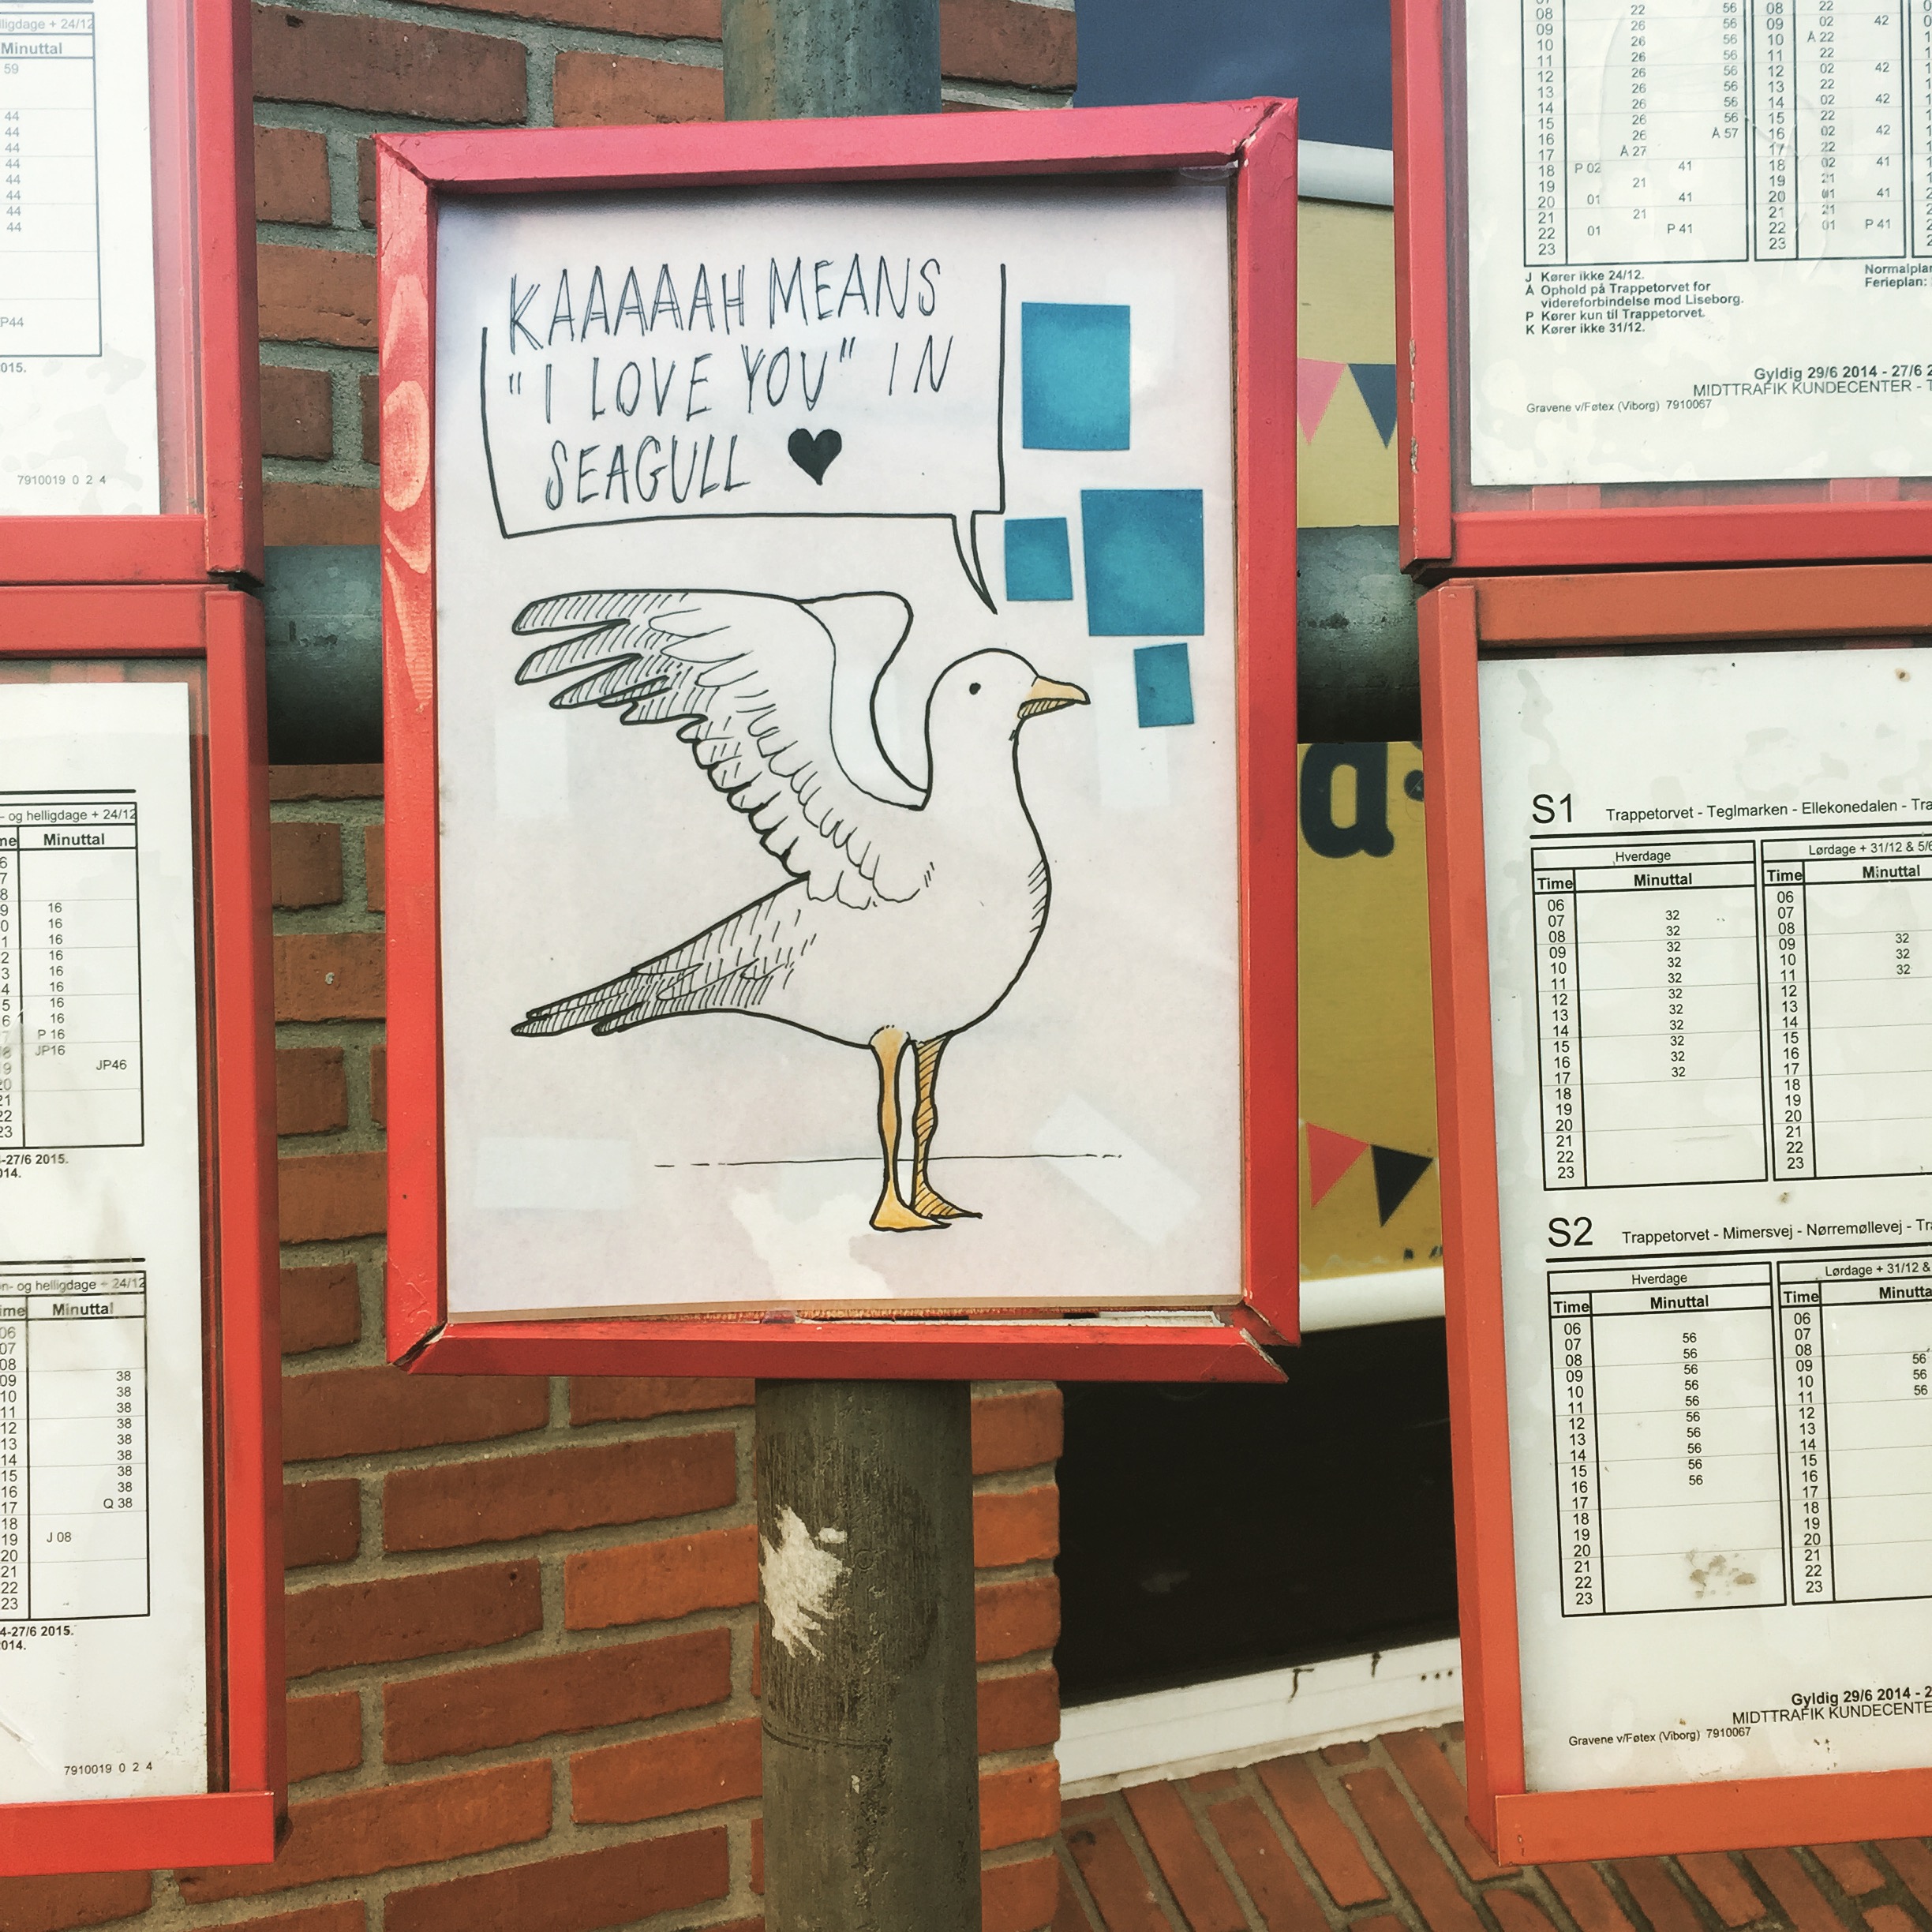 KAAAAAH MEANS
"I LOVE YOU" IN
SEAGULL
lligdage + 24/12
Minuttal
59
44
44
44
44
44
44
44
44
P44
015.
7910019 0 2 4
- og helligdage + 24/12
Minuttal
16
16
16
16
16
16
16
16
P 16
JP16
JP46
-27/6 2015.
014.
n- og helligdage + 24/12
Minuttal
06
07
08
09 38
10 38
11 38
12 38
13 38
14 38
15 38
16 38
17 Q 38
18
19 J 08
20
21
22
23
4-27/6 2015.
014.
7910019 0 2 4
08 22 56
09 26 56
10 26 56
11 26 56
12 26 56
13 26 56
14 26 56
15 26 56
16 26 Å 57
17 Å 27
18 P 02 41
19 21
20 01 41
21 21
22 01 P 41
23
08 22
09 02 42
10 Å 22
11 22
12 02 42
13 22
14 02 42
15 22
16 02 42
17 22
18 02 41
19 21
20 01 41
21 21
22 01 P 41
23
J Kører ikke 24/12.
Å Ophold på Trappetorvet for
videreforbindelse mod Liseborg.
P Kører kun til Trappetorvet.
K Kører ikke 31/12.
Normalplan
Ferieplan:
Gyldig 29/6 2014 - 27/6 2
MIDTTRAFIK KUNDECENTER - T
Gravene v/Føtex (Viborg) 7910067
a
S1 Trappetorvet - Teglmarken - Ellekonedalen - Tra
Hverdage
Time Minuttal
06
07 32
08 32
09 32
10 32
11 32
12 32
13 32
14 32
15 32
16 32
17 32
18
19
20
21
22
23
Lørdage + 31/12 & 5/6
Time Minuttal
06
07
08
09 32
10 32
11 32
12
13
14
15
16
17
18
19
20
21
22
23
S2 Trappetorvet - Mimersvej - Nørremøllevej - Tra
Hverdage
Time Minuttal
06
07 56
08 56
09 56
10 56
11 56
12 56
13 56
14 56
15 56
16 56
17
18
19
20
21
22
23
Lørdage + 31/12 &
Time Minutta
06
07
08
09 56
10 56
11 56
12
13
14
15
16
17
18
19
20
21
22
23
Gyldig 29/6 2014 - 2
MIDTTRAFIK KUNDECENTE
Gravene v/Føtex (Viborg) 7910067